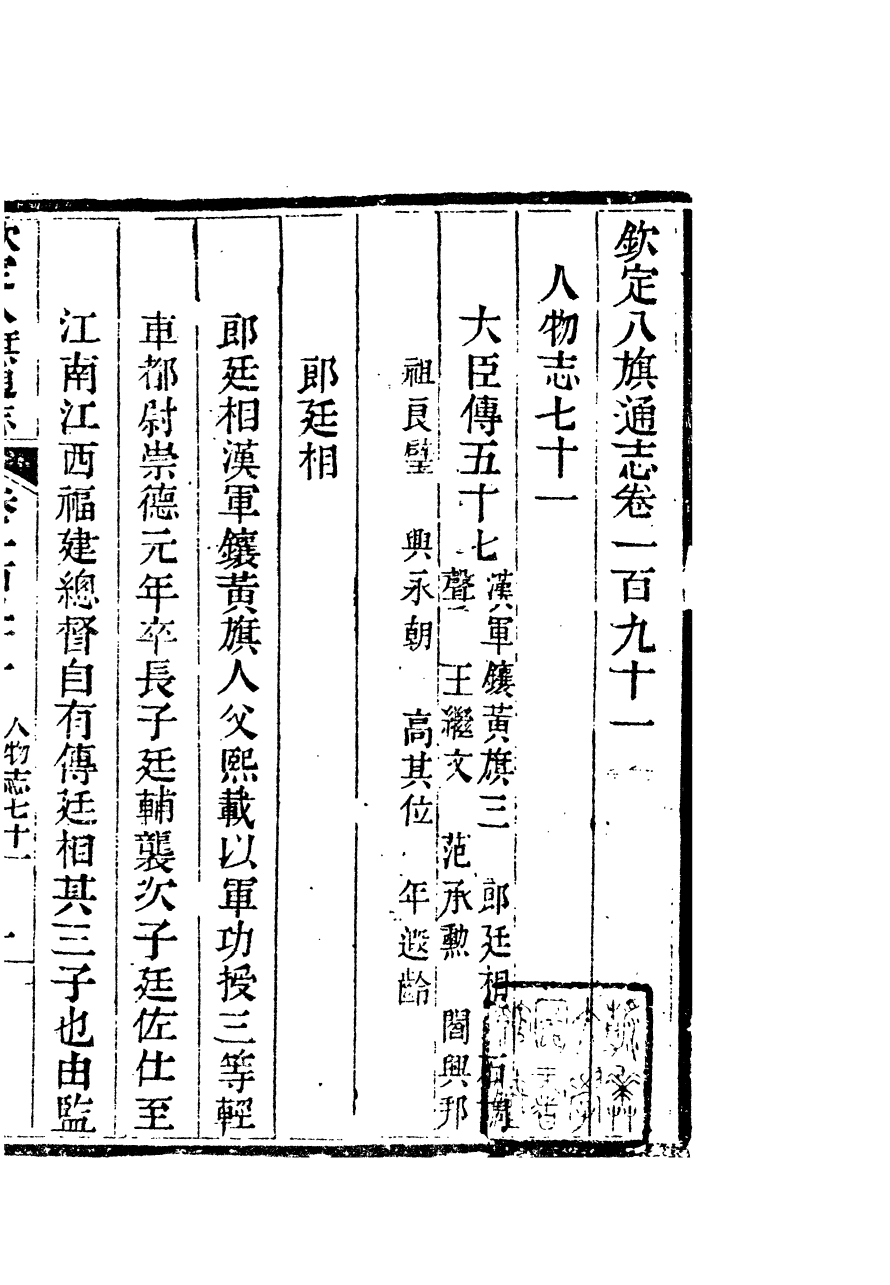 欽定八旗通志卷一百九十一
人物志七十一
大臣傳五十七
漢軍鑲黃旗三 郎廷相 石
聲 王繼文 范承勲 閻興邦
祖良璧 興永朝 高其位 年遐齡
郎廷相
郎廷相漢軍鑲黃旗人父熙載以軍功授三等輕
車都尉崇德元年卒長子廷輔襲次子廷佐仕至
江南江西福建總督自有傳廷相其三子也由監
人物志七十一